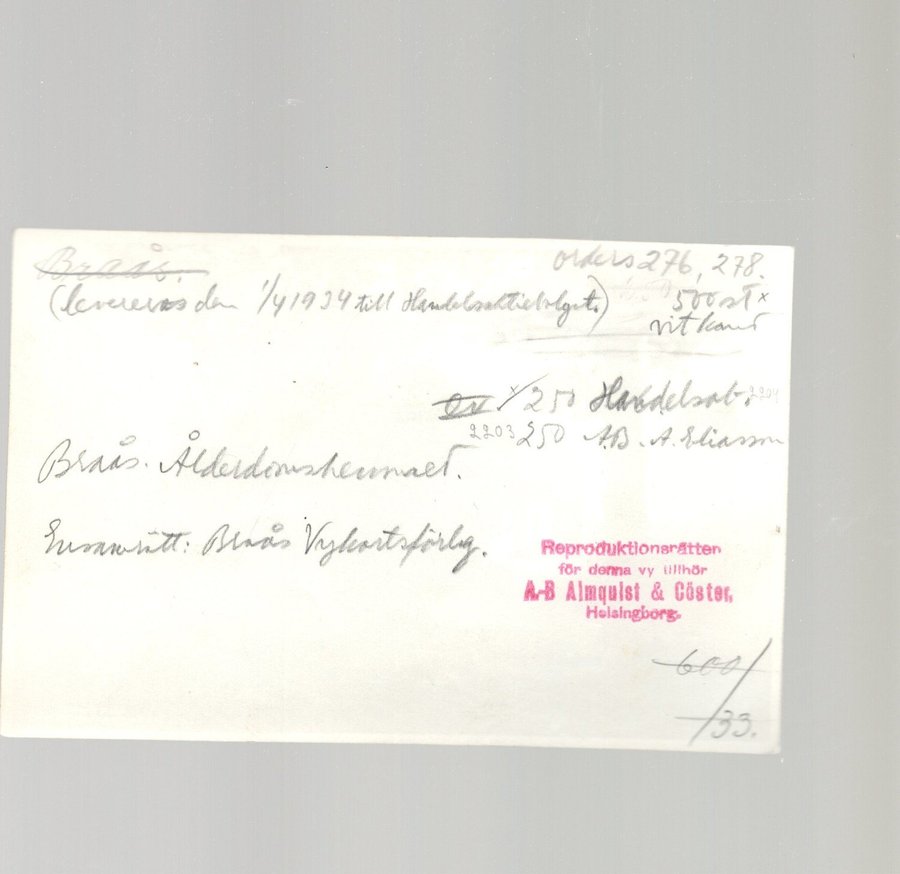 Braås.
orders 276, 278.
(levereras den 1/4 1934 till Handelsaktiebolaget.)
500 st x
vit kant
x/250 Handelsab. 2204
2203 250 AB. A. Eliasson
Braås. Ålderdomshemmet.
Ensamrätt: Braås Vykortsförlag.
Reproduktionsrätten
för denna vy tillhör
A.-B Almquist & Cöster,
Helsingborg.
600/
33.